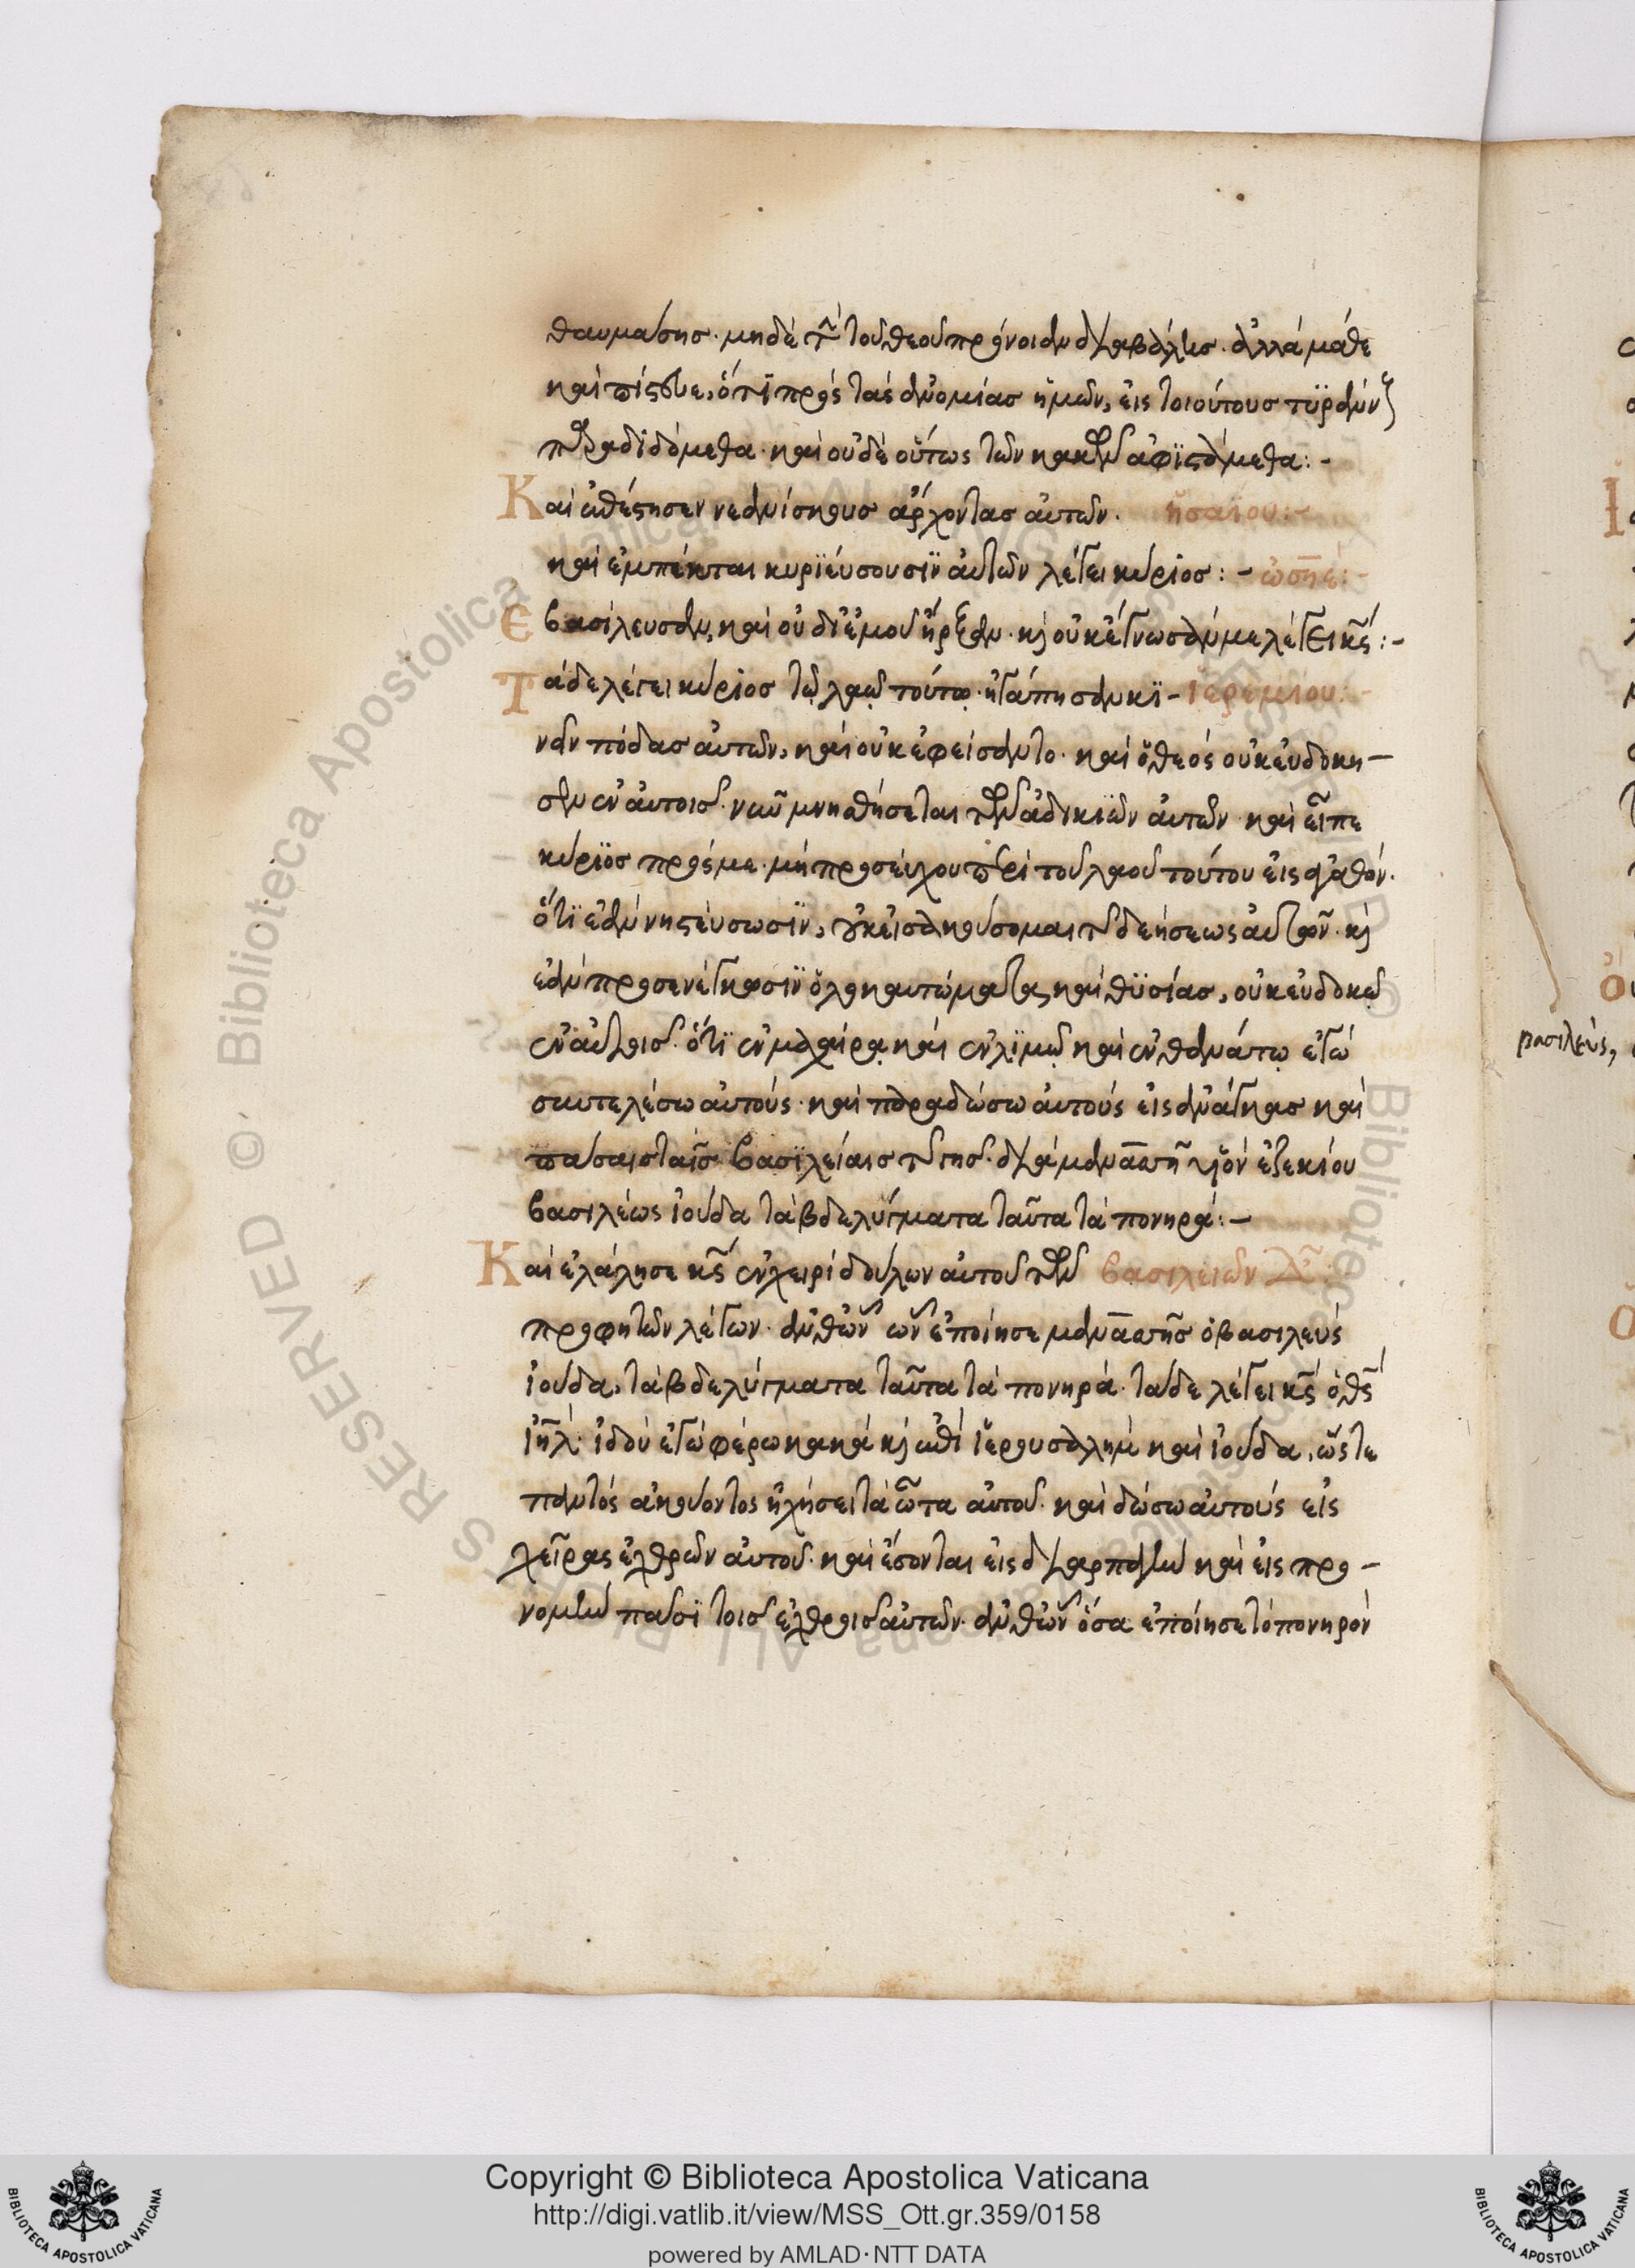 θαυμάσης· μηδὲ τὴν τοῦ θεοῦ πρόνοιαν διαβάλῃς. ἀλλὰ μάθε
καὶ πίστευε, ὅτι πρὸς τὰς ἀνομίας ἡμῶν, εἰς τοιούτους τϋράνν
παραδιδόμεθα· καὶ οὐδὲ οὕτως τῶν κακῶν ἀφϊστάμεθα:-
Καὶ ἐπέστησεν νεανίσκους ἄρχοντας αὐτῶν. ἠσαΐου:-
καὶ ἐμπαίκται κυρϊεύσουσϊν αὐτῶν λέγει κύριος:- ὠσηέ:-
Ἐβασίλευσαν, καὶ οὐ δι' ἐμοῦ ἦρξαν· κ οὐκ ἔγνωσάν με λέγει κς:-
Τάδε λέγει κύριος τῷ λαῷ τούτῳ· ἠγάπησαν κϊ- ἱερεμίου:-
νεῖν πόδας αὐτῶν, καὶ οὐκ ἐφείσαντο· καὶ ὁ θεός οὐκ εὐδόκη-
σεν ἐν αὐτοῖς· νῦν μνησθήσεται τῶν ἀδικιῶν αὐτῶν· καὶ εἶπε
κύρϊος πρός με· μὴ προσεύχου περὶ τοῦ λαοῦ τούτου εἰς ἀγαθόν.
ὅτϊ ἐὰν νηστεύσωσϊν, οὐκ εἰσακούσομαι τῆς δεήσεως αὐτῶν· κ
ἐὰν προσενέγκωσϊν ὁλοκαυτώματα καὶ θϋσίας, οὐκ εὐδοκῶ
ἐν αὐτοῖς· ὅτϊ ἐν μαχαίρᾳ καὶ ἐν λϊμῷ καὶ ἐν θανάτῳ ἐγώ
συντελέσω αὐτούς· καὶ παραδώσω αὐτούς εἰς ἀνάγκας καὶ
πάσαις ταῖς βασϊλείαις τῆς γῆς· διὰ μανασσῆ υἱὸν ἐζεκίου
βασιλέως ἰούδα τὰ βδελύγματα ταῦτα τὰ πονηρά:-
Καὶ ἐλάλησε κς ἐν χειρὶ δούλων αὐτοῦ τῶν βασιλειῶν Δ:
προφητῶν λέγων· ἀνθ' ὧν ἐποίησε μανασσῆς ὁ βασιλεὺς
ἰούδα, τὰ βδελύγματα ταῦτα τὰ πονηρά· τάδε λέγει κς ὁ θς
ιηλ· ἰδοὺ ἐγὼ φέρω κακὰ κ ἐπὶ ἱερουσαλημ καὶ ἰούδα, ὥστε
παντός ἀκούοντος ἠχήσει τὰ ὦτα αὐτοῦ· καὶ δώσω αὐτούς εἰς
χεῖρας ἐχθρῶν αὐτοῦ· καὶ ἔσονται εἰς διαρπαγὴν καὶ εἰς προ-
νομὴν πάσϊ τοῖς ἐχθροῖς αὐτῶν· ἀνθ' ὧν ὅσα ἐποίησε τὸ πονηρὸν
βασιλεὺς,
Copyright © Biblioteca Apostolica Vaticana
http://digi.vatlib.it/view/MSS_Ott.gr.359/0158
powered by AMLAD·NTT DATA